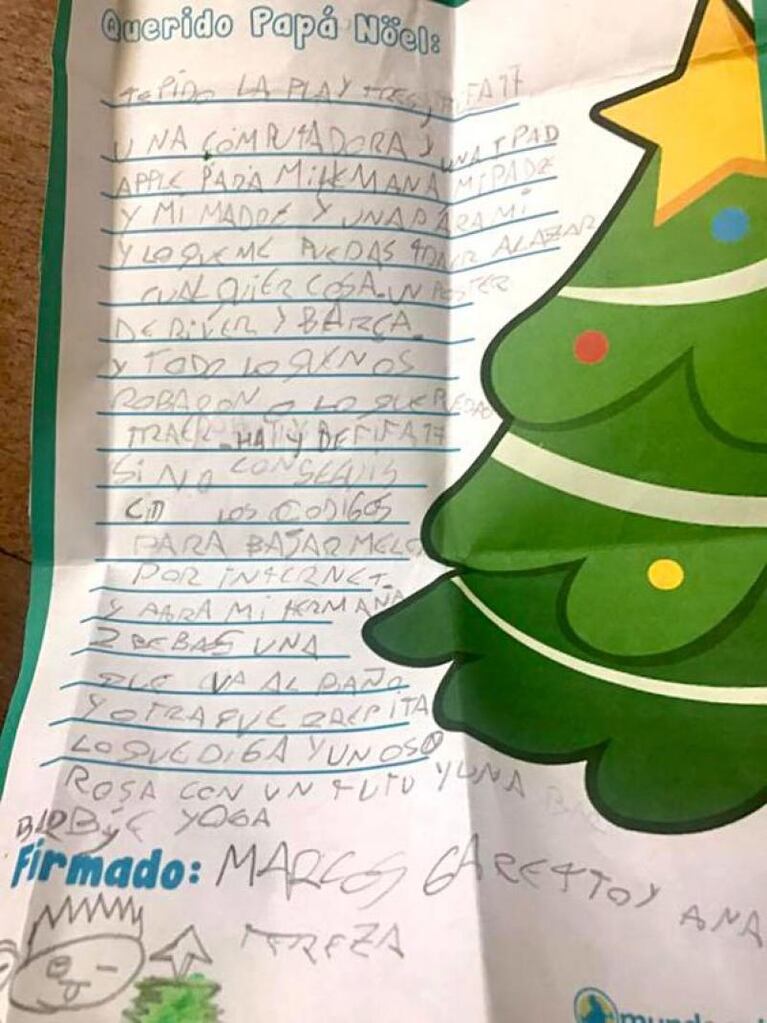 Querido Papá Nöel:
TE PIDO LA PLAY TRES Y FIFA 17
UNA COMPUTADORA Y UNA IPAD
APPLE PARA MI HERMANA MI PADE
Y MI MADRE Y UNA PARA MI
Y LO QUE ME PUEDAS TRAER AL AZAR
CUALQUIER COSA. UN POSTER
DE RIVER Y BARÇA.
Y TODO LO QUE NOS
ROBARON O LO QUE PUEDAS
TRAER HATY DE FIFA 17
SI NO CONSEGUIS
CD LOS CODIGOS
PARA BAJARMELO
POR INTERNET.
Y PARA MI HERMANA
2 BEBAS UNA
QUE VA AL BAÑO
Y OTRA QUE REPITA
LO QUE DIGA Y UN OSO
ROSA CON UN TUTU Y UNA
BARBYE YOGA
Firmado: MARCOS GARETTO Y ANA
TEREZA